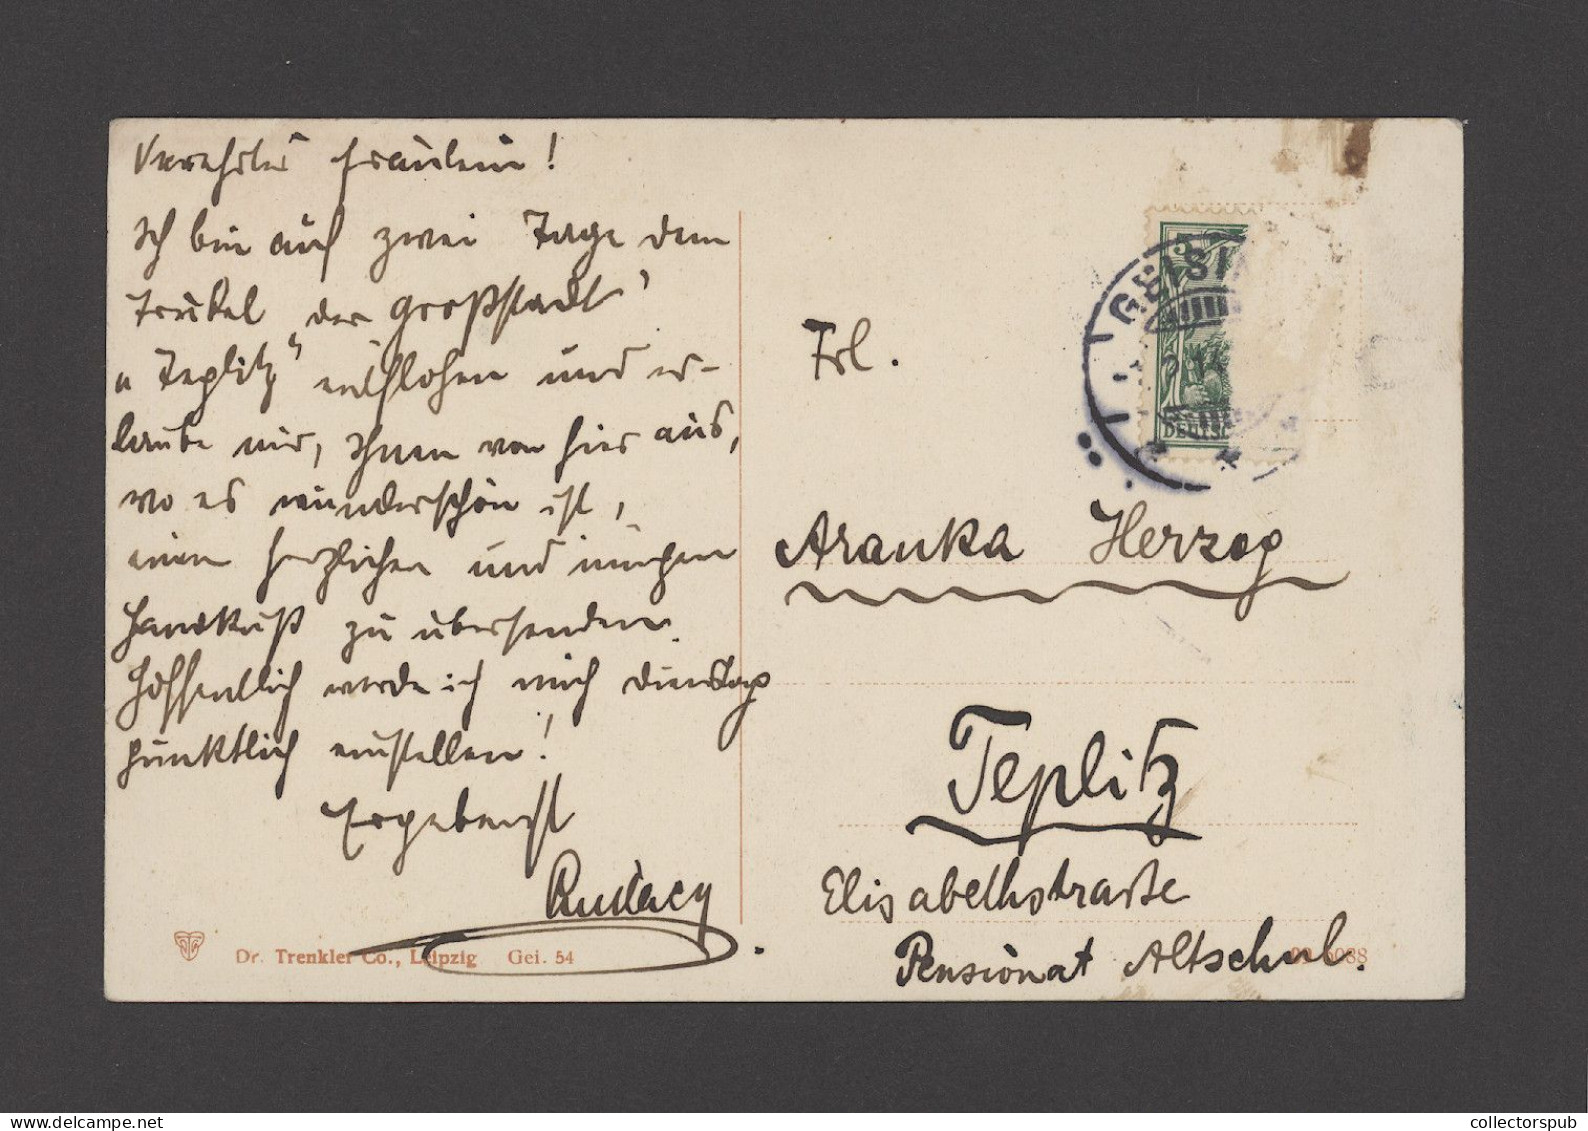 Verehrtes Fräulein!
Ich bin auf zwei Tage dem
Trubel „der Großstadt"
„Teplitz" entflohen und er-
laube mir, Ihnen von hier aus,
wo es wunderschön ist,
einen herzlichen und innigen
Handkuß zu übersenden.
Hoffentlich werde ich mich Dienstag
pünktlich einstellen!
Ergebenst
Dr. Trenkler Co., Leipzig Gei. 54
5
GEISIN
DEUTSC
Frl.
Aranka Herzog
Teplitz
Elisabethstraße
Pensionat Altschul.
collectorspub